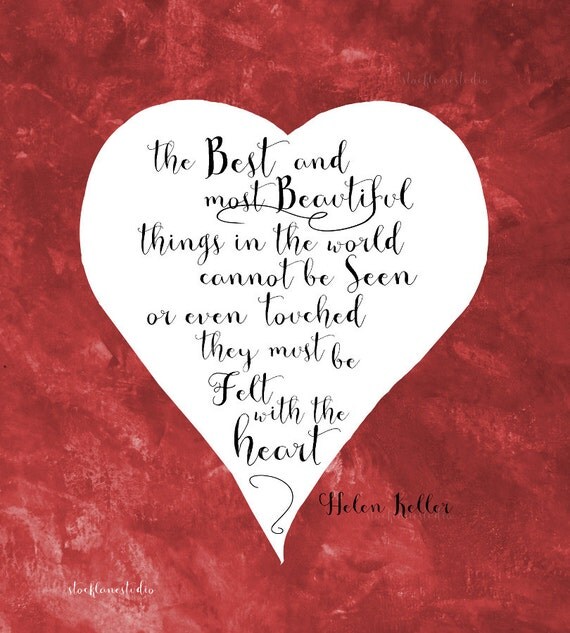 the Best and
most Beautiful
things in the world
cannot be Seen
or even touched
they must be
Felt
with the
heart
Helen Keller
stocklanestudio
stocklanestudio